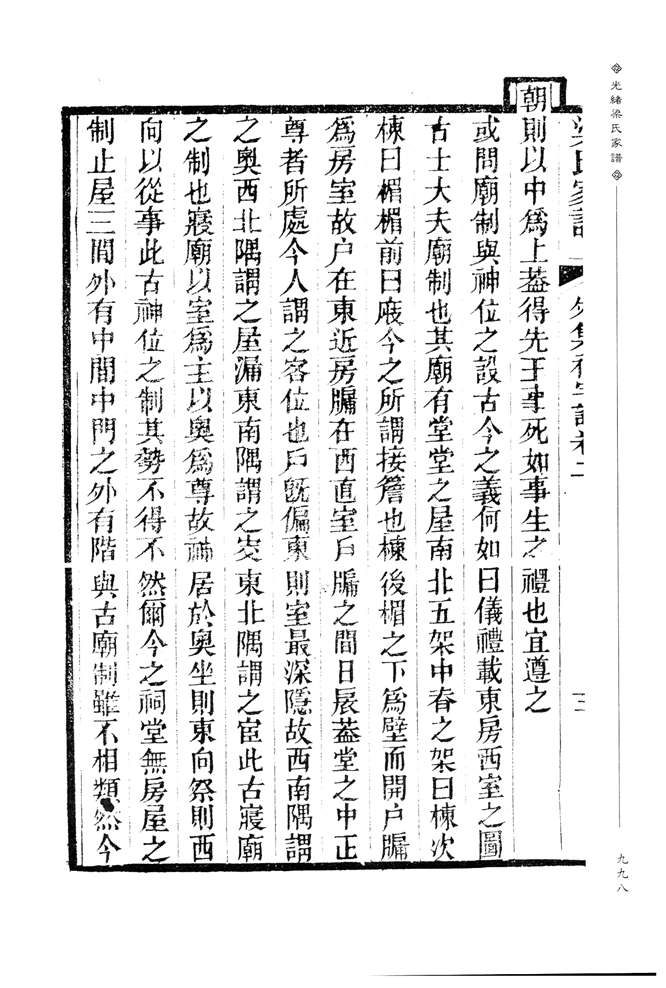 光緒梁氏家譜
九九八
梁氏家譜 外集祠宇譜卷二 三
朝則以中爲上葢得先王事死如事生之禮也宜遵之
或問廟制與神位之設古今之義何如曰儀禮載東房西室之圖
古士大夫廟制也其廟有堂堂之屋南北五架中脊之架曰棟次
棟曰楣楣前曰庪今之所謂接簷也棟後楣之下爲壁而開户牖
爲房室故户在東近房牖在西直室戶牖之間曰扆葢堂之中正
尊者所處今人謂之客位也戶旣偏東則室最深隱故西南隅謂
之奥西北隅謂之屋漏東南隅謂之窔東北隅謂之宧此古寢廟
之制也寢廟以室爲主以奥爲尊故神居於奥坐則東向祭則西
向以從事此古神位之制其勢不得不然爾今之祠堂無房屋之
制止屋三間外有中間中門之外有階與古廟制雖不相類然今